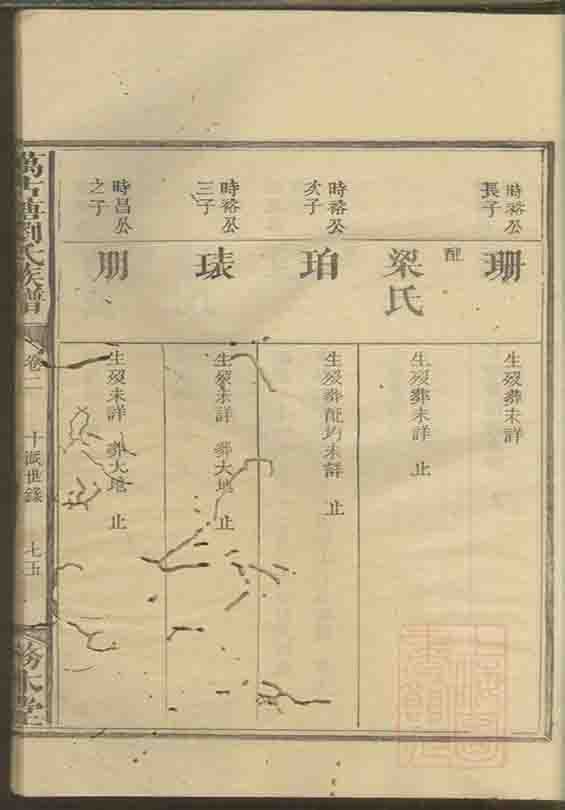 時裕公
長子
珊
生歿葬未詳
配
梁氏
生歿葬未詳 止
時裕公
次子
珀
生歿葬配均未詳 止
時裕公
三子
生歿未詳 葬大地 止
時昌公
之子
朋
生歿未詳 葬大地 止
萬古塘劉氏族譜
卷二
十派世錄
七五